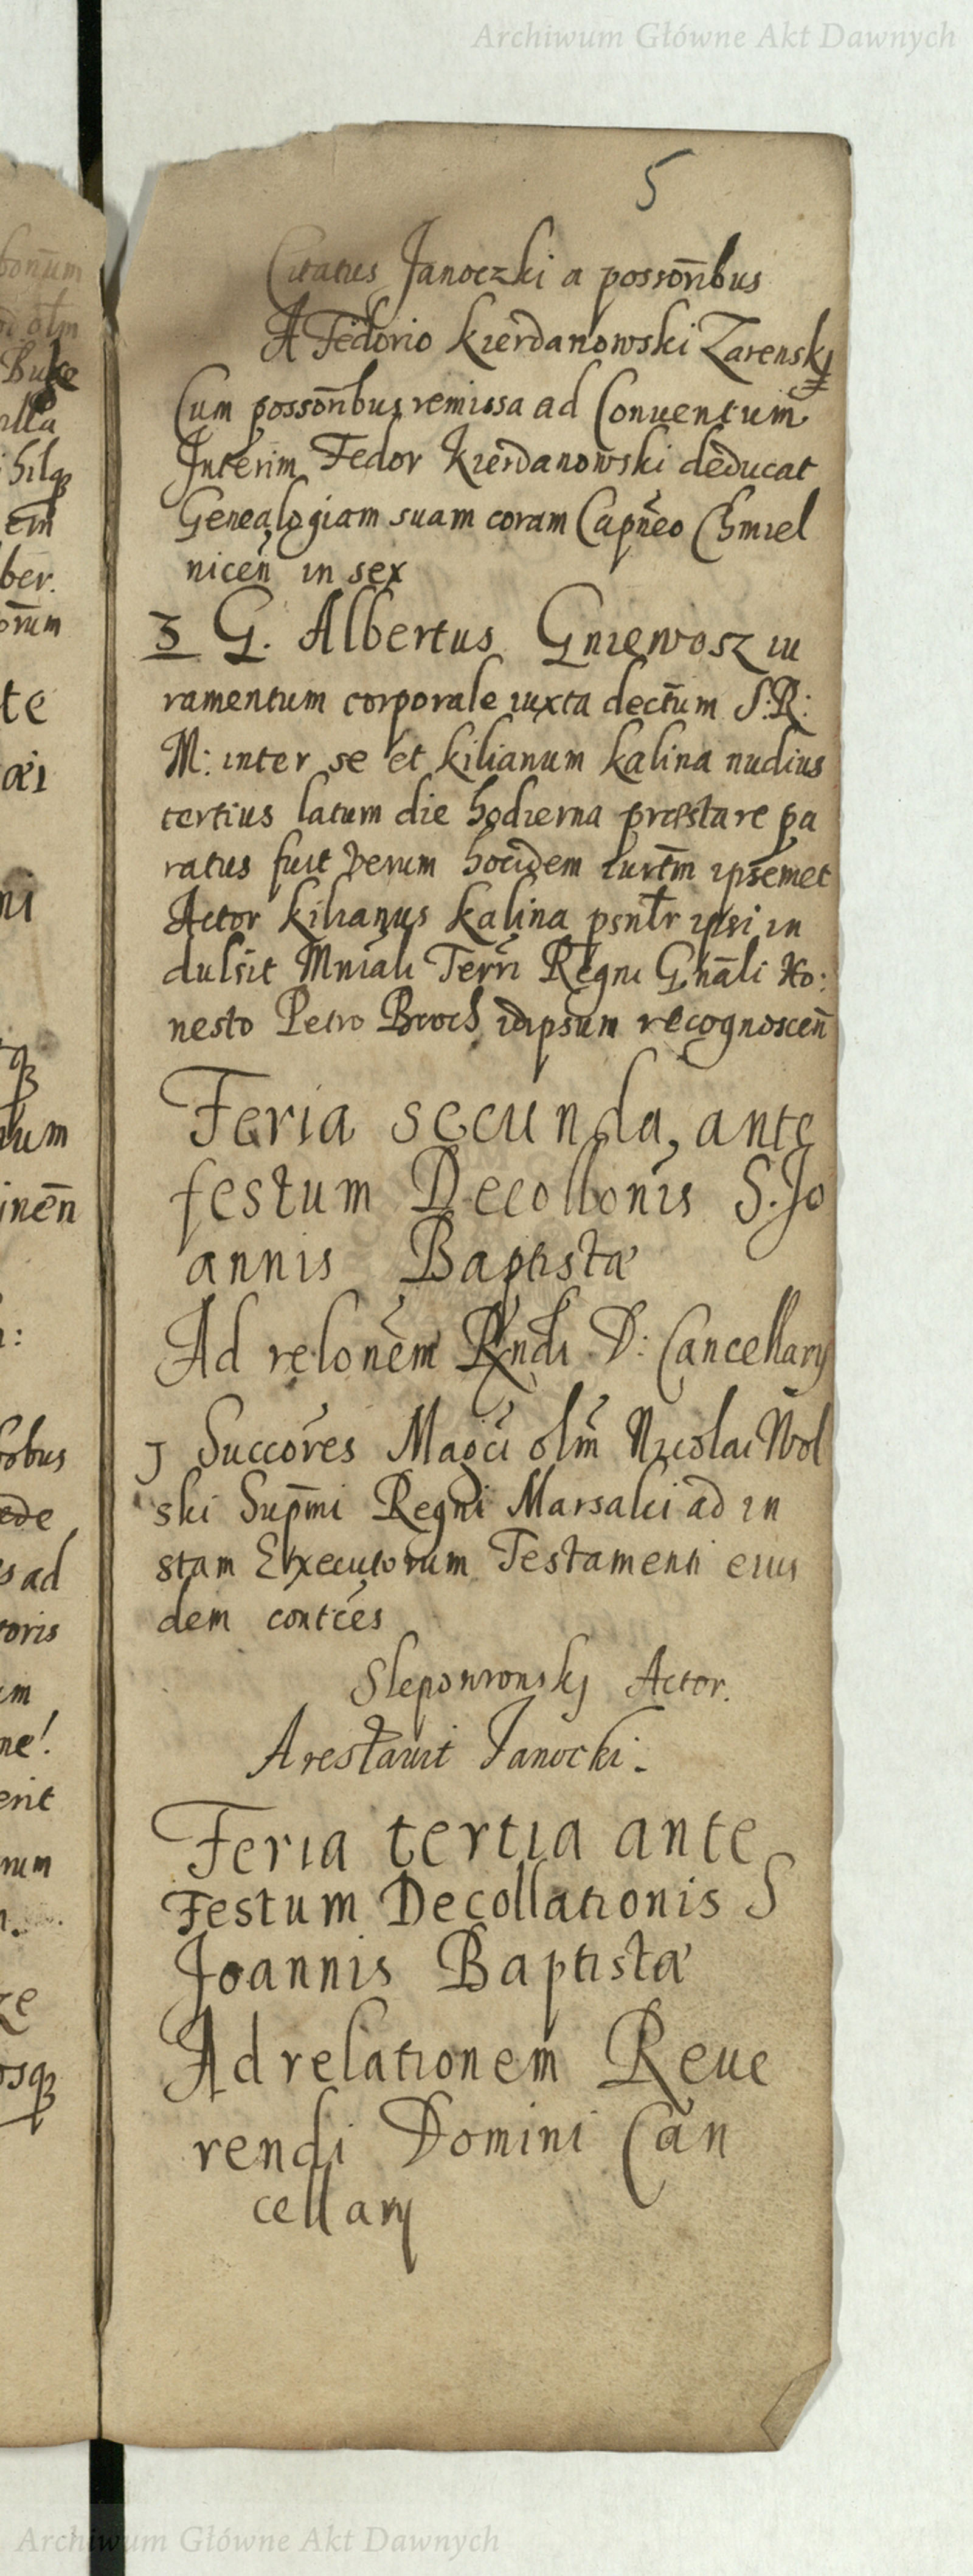 Archiwum Główne Akt Dawnych
5
Citatus Janoczki a possorībus
A Fedorio Kierdanowski Zarenskj
Cum possorībus remissa ad Conventum
Interim Fedor Kierdanowski deducat
Genealogiam suam coram Capneo Chmiel
nicen in sex
3 G. Albertus Gniewosz iu
ramentum corporale iuxta dectum S: R:
M: inter se et Kilianum Kalina nudius
tertius latum die hodierna præstare pa
ratus fuit Verum hocidem iurtm ipsemet
Actor Kilianus Kalina psntr ipsi in
dulsit Mniali Terri Regni Gnali Ho:
nesto Petro Broch idipsum recognoscen
Feria secunda, ante
festum Decollonis S. Jo
annis Baptistæ
Ad relonem Rndi D: Cancellarij
1 Succores Magci olm Nicolai Wol
ski Supmi Regni Marsalci ad in
stam Executorum Testamenti eius
dem contces
Sleponronskj Actor.
Arestavit Janocki.
Feria tertia ante
Festum Decollationis S
Joannis Baptistæ
Ad relationem Reve
rendi Domini Can
cellarij
Archiwum Główne Akt Dawnych